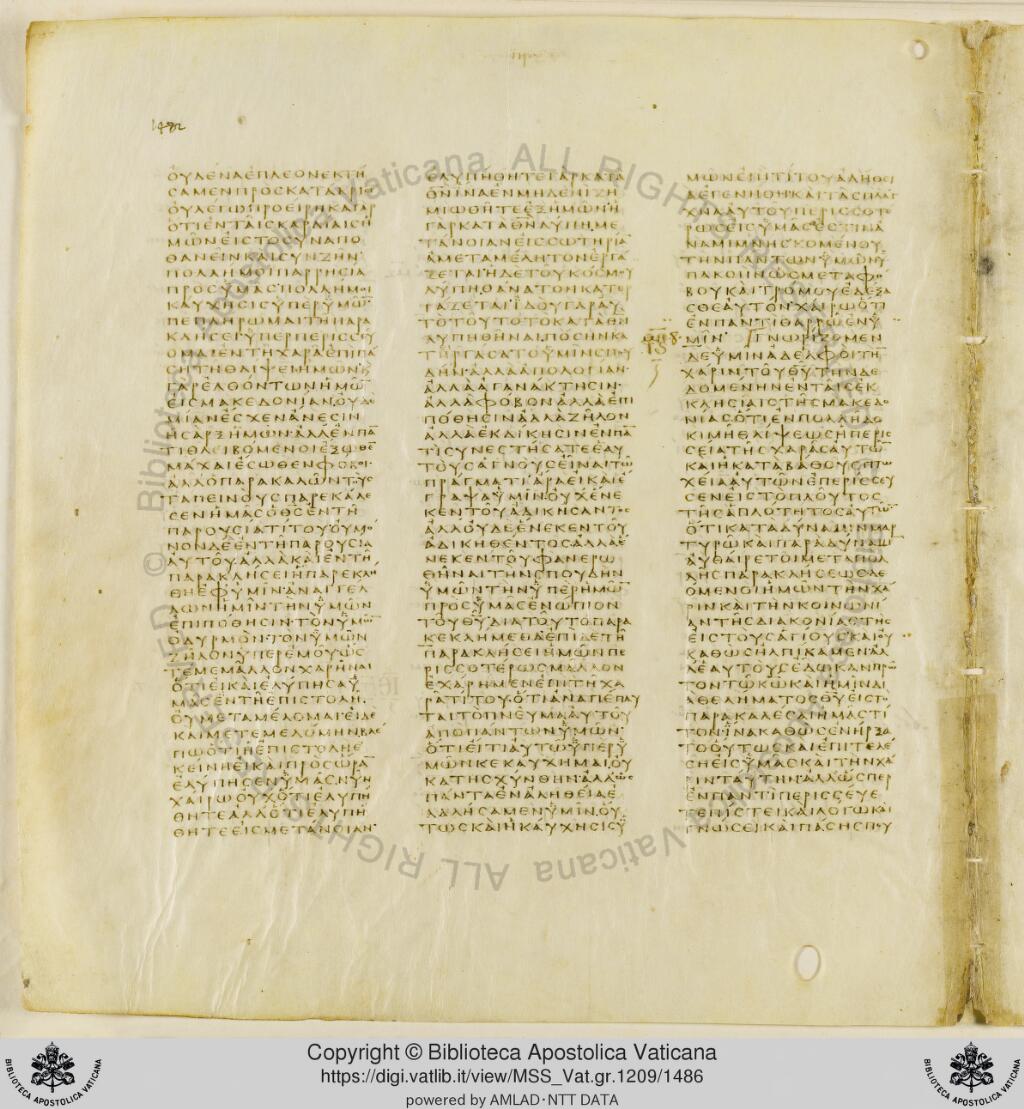 1482
ΟΥΔΕΝΑΕΠΛΕΟΝΕΚΤΗ
ϹΑΜΕΝΠΡΟϹΚΑΤΑΚΡΙϹΙ
ΟΥΛΕΓΩΠΡΟΕΙΡΗΚΑΓΑΡ
ΟΤΙΕΝΤΑΙϹΚΑΡΔΙΑΙϹΗ
ΜΩΝΕΙϹΤΟϹΥΝΑΠΟ
ΘΑΝΕΙΝΚΑΙϹΥΝΖΗΝ
ΠΟΛΛΗΜΟΙΠΑΡΡΗϹΙΑ
ΠΡΟϹΥΜΑϹΠΟΛΛΗΜΟΙ
ΚΑΥΧΗϹΙϹΥΠΕΡΥΜΩ̅
ΠΕΠΛΗΡΩΜΑΙΤΗΠΑΡΑ
ΚΛΗϹΕΙΥΠΕΡΠΕΡΙϹϹΕΥ
ΟΜΑΙΕΝΤΗΧΑΡΑΕΠΙΠΑ
ϹΗΤΗΘΛΙΨΕΙΗΜΩΝΚΑΙ
ΓΑΡΕΛΘΟΝΤΩΝΗΜΩ̅
ΕΙϹΜΑΚΕΔΟΝΙΑΝΟΥΔΕ
ΜΙΑΝΕϹΧΕΝΑΝΕϹΙΝ
ΗϹΑΡΞΗΜΩΝ·ΑΛΛΕΝΠΑ̅
ΤΙΘΛΕΙΒΟΜΕΝΟΙΕΞΩΘΕ̅
ΜΑΧΑΙΕϹΩΘΕΝΦΟΒΟΙ·
ΑΛΛΟΠΑΡΑΚΑΛΩΝΤΟΥϹ
ΤΑΠΕΙΝΟΥϹΠΑΡΕΚΑΛΕ
ϹΕΝΗΜΑϹΟΘϹΕΝΤΗ
ΠΑΡΟΥϹΙΑΤΙΤΟΥΟΥΜΟ
ΝΟΝΔΕΕΝΤΗΠΑΡΟΥϹΙΑ
ΑΥΤΟΥ·ΑΛΛΑΚΑΙΕΝΤΗ
ΠΑΡΑΚΛΗϹΕΙΗΠΑΡΕΚΛΗ
ΘΗΕΦΥΜΙΝ·ΑΝΑΓΓΕΛ
ΛΩΝΗΜΙΝΤΗΝΥΜΩΝ
ΕΠΙΠΟΘΗϹΙΝ·ΤΟΝΥΜΩ̅
ΟΔΥΡΜΟΝ·ΤΟΝΥΜΩΝ
ΖΗΛΟΝΥΠΕΡΕΜΟΥΩϹ
ΤΕΜΕΜΑΛΛΟΝΧΑΡΗΝΑΙ
ΟΤΙΕΙΚΑΙΕΛΥΠΗϹΑΥ
ΜΑϹΕΝΤΗΕΠΙϹΤΟΛΗ·
ΟΥΜΕΤΑΜΕΛΟΜΑΙΕΙΔΕ
ΚΑΙΜΕΤΕΜΕΛΟΜΗΝΒΛΕ
ΠΩΟΤΙΗΕΠΙϹΤΟΛΗΕ
ΚΕΙΝΗΕΙΚΑΙΠΡΟϹΩΡΑ̅
ΕΛΥΠΗϹΕΝΥΜΑϹ·ΝΥΝ
ΧΑΙΡΩΟΥΧΟΤΙΕΛΥΠΗ
ΘΗΤΕΑΛΛΟΤΙΕΛΥΠΗ
ΘΗΤΕΕΙϹΜΕΤΑΝΟΙΑΝ·
ΕΛΥΠΗΘΗΤΕΓΑΡΚΑΤΑ
ΘΝΙΝΑΕΝΜΗΔΕΝΙΖΗ
ΜΙΩΘΗΤΕΕΞΗΜΩΝΗ
ΓΑΡΚΑΤΑΘΝΛΥΠΗΜΕ
ΤΑΝΟΙΑΝΕΙϹϹΩΤΗΡΙΑ̅
ΑΜΕΤΑΜΕΛΗΤΟΝΕΡΓΑ
ΖΕΤΑΙΗΔΕΤΟΥΚΟϹΜΟΥ
ΛΥΠΗΘΑΝΑΤΟΝΚΑΤΕΡ
ΓΑΖΕΤΑΙΪΔΟΥΓΑΡΑΥ
ΤΟΤΟΥΤΟΤΟΚΑΤΑΘΝ
ΛΥΠΗΘΗΝΑΙ·ΠΟϹΗΝΚΑ
ΤΗΡΓΑϹΑΤΟΥΜΙΝϹΠΟΥ
ΔΗΝ·ΑΛΛΑΑΠΟΛΟΓΙΑΝ·
ΑΛΛΑΑΓΑΝΑΚΤΗϹΙΝ·
ΑΛΛΑΦΟΒΟΝΑΛΛΑΕΠΙ
ΠΟΘΗϹΙΝΑΛΛΑΖΗΛΟΝ
ΑΛΛΑΕΚΔΙΚΗϹΙΝΕΝΠΑ̅
ΤΙϹΥΝΕϹΤΗϹΑΤΕΕΑΥ
ΤΟΥϹΑΓΝΟΥϹΕΙΝΑΙΤΩ
ΠΡΑΓΜΑΤΙ·ΑΡΑΕΙΚΑΙΕ
ΓΡΑΨΑΥΜΙΝΟΥΧΕΝΕ
ΚΕΝΤΟΥΑΔΙΚΗϹΑΝΤΟϹ
ΑΛΛΟΥΔΕΕΝΕΚΕΝΤΟΥ
ΑΔΙΚΗΘΕΝΤΟϹΑΛΛΑΕ
ΝΕΚΕΝΤΟΥΦΑΝΕΡΩ
ΘΗΝΑΙΤΗΝϹΠΟΥΔΗΝ
ΥΜΩΝΤΗΝΥΠΕΡΗΜΩ̅
ΠΡΟϹΥΜΑϹΕΝΩΠΙΟΝ
ΤΟΥΘΥ·ΔΙΑΤΟΥΤΟΠΑΡΑ
ΚΕΚΛΗΜΕΘΑΕΠΙΔΕΤΗ
ΠΑΡΑΚΛΗϹΕΙΗΜΩΝΠΕ
ΡΙϹϹΟΤΕΡΩϹΜΑΛΛΟΝ
ΕΧΑΡΗΜΕΝΕΠΙΤΗΧΑ
ΡΑΤΙΤΟΥ·ΟΤΙΑΝΑΠΕΠΑΥ
ΤΑΙΤΟΠΝΕΥΜΑΑΥΤΟΥ
ΑΠΟΠΑΝΤΩΝΥΜΩΝ·
ΟΤΙΕΙΤΙΑΥΤΩΥΠΕΡΥ
ΜΩΝΚΕΚΑΥΧΗΜΑΙΟΥ
ΚΑΤΗϹΧΥΝΘΗΝ·ΑΛΛΩϹ
ΠΑΝΤΑΕΝΑΛΗΘΕΙΑΕ
ΛΑΛΗϹΑΜΕΝΥΜΙΝ·ΟΥ
ΤΩϹΚΑΙΗΚΑΥΧΗϹΙϹΥ
ΜΩΝΕΠΙΤΙΤΟΥΑΛΗΘΕΙ
ΑΕΓΕΝΗΘΗΚΑΙΤΑϹΠΛΑΓ
ΧΝΑΑΥΤΟΥΠΕΡΙϹϹΟΤΕ
ΡΩϹΕΙϹΥΜΑϹΕϹΤΙΝΑ
ΝΑΜΙΜΝΗϹΚΟΜΕΝΟΥ
ΤΗΝΠΑΝΤΩΝΥΜΩΝΥ
ΠΑΚΟΗΝΩϹΜΕΤΑΦΟ
ΒΟΥΚΑΙΤΡΟΜΟΥΕΔΕΞΑ
ϹΘΕΑΥΤΟΝΧΑΙΡΩΟΤΙ
ΕΝΠΑΝΤΙΘΑΡΡΩΕΝΥ
ΜΙΝ· ΓΝΩΡΙΖΟΜΕΝ
ΔΕΥΜΙΝΑΔΕΛΦΟΙΤΗ̅
ΧΑΡΙΝΤΟΥΘΥΤΗΝΔΕ
ΔΟΜΕΝΗΝΕΝΤΑΙϹΕΚ
ΚΛΗϹΙΑΙϹΤΗϹΜΑΚΕΔΟ
ΝΙΑϹΟΤΙΕΝΠΟΛΛΗΔΟ
ΚΙΜΗΘΛΙΨΕΩϹΗΠΕΡΙϹ
ϹΕΙΑΤΗϹΧΑΡΑϹΑΥΤΩ̅
ΚΑΙΗΚΑΤΑΒΑΘΟΥϹΠΤΩ
ΧΕΙΑΑΥΤΩΝΕΠΕΡΙϹϹΕΥ
ϹΕΝΕΙϹΤΟΠΛΟΥΤΟϹ
ΤΗϹΑΠΛΟΤΗΤΟϹΑΥΤΩ̅
ΟΤΙΚΑΤΑΔΥΝΑΜΙΝΜΑΡ
ΤΥΡΩΚΑΙΠΑΡΑΔΥΝΑΜΙ̅
ΑΥΘΑΙΡΕΤΟΙΜΕΤΑΠΟΛ
ΛΗϹΠΑΡΑΚΛΗϹΕΩϹΔΕ
ΟΜΕΝΟΙΗΜΩΝΤΗΝΧΑ
ΡΙΝΚΑΙΤΗΝΚΟΙΝΩΝΙ
ΑΝΤΗϹΔΙΑΚΟΝΙΑϹΤΗϹ
ΕΙϹΤΟΥϹΑΓΙΟΥϹΚΑΙΟΥ
ΚΑΘΩϹΗΛΠΙΚΑΜΕΝΑΛ
ΛΕΑΥΤΟΥϹΕΔΩΚΑΝΠΡΩ
ΤΟΝΤΩΚΩΚΑΙΗΜΙΝΔΙ
ΑΘΕΛΗΜΑΤΟϹΘΥΕΙϹΤΟ
ΠΑΡΑΚΑΛΕϹΑΙΗΜΑϹΤΙ
ΤΟΝΙΝΑΚΑΘΩϹΕΝΗΡΞΑ
ΤΟΟΥΤΩϹΚΑΙΕΠΙΤΕΛΕ
ϹΗΕΙϹΥΜΑϹΚΑΙΤΗΝΧΑ
ΡΙΝΤΑΥΤΗΝ·ΑΛΛΩϹΠΕΡ
ΕΝΠΑΝΤΙΠΕΡΙϹϹΕΥΕ
ΤΕΠΙϹΤΕΙΚΑΙΛΟΓΩΚΑΙ
ΓΝΩϹΕΙΚΑΙΠΑϹΗϹΠΟΥ
Copyright © Biblioteca Apostolica Vaticana
https://digi.vatlib.it/view/MSS_Vat.gr.1209/1486
powered by AMLAD·NTT DATA